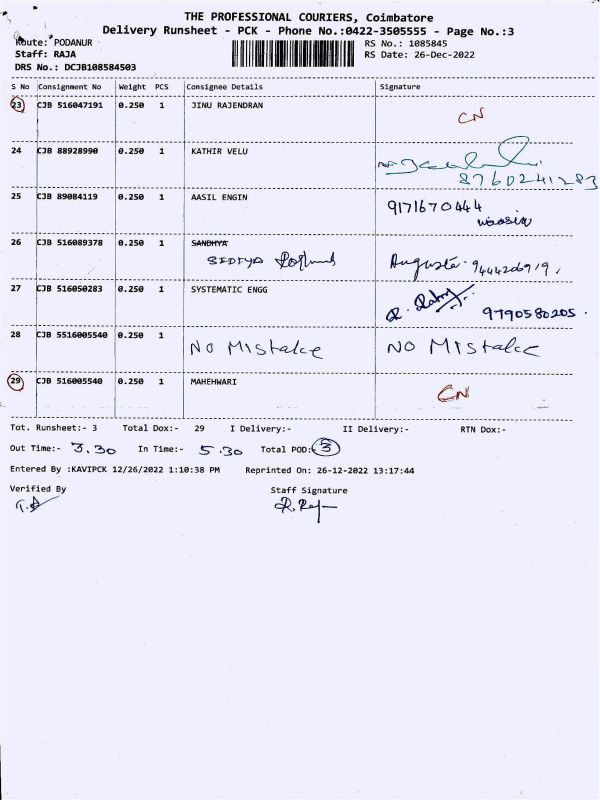 THE PROFESSIONAL COURIERS, Coimbatore
Delivery Runsheet - PCK - Phone No.:0422-3505555 - Page No.:3
Route: PODANUR
RS No.: 1085845
Staff: RAJA
RS Date: 26-Dec-2022
DRS No.: DCJB108584503
S No Consignment No Weight PCS Consignee Details Signature
23 CJB 516047191 0.250 1 JINU RAJENDRAN CN
24 CJB 88928990 0.250 1 KATHIR VELU
8760241283
25 CJB 89084119 0.250 1 AASIL ENGIN 9171670444
26 CJB 516089378 0.250 1 SANDHYA
Auguste. 9444206919.
27 CJB 516050283 0.250 1 SYSTEMATIC ENGG
9790580205.
28 CJB 5516005540 0.250 1
NO MIStake NO MIStake
29 CJB 516005540 0.250 1 MAHEHWARI CN
Tot. Runsheet:- 3 Total Dox:- 29 I Delivery:- II Delivery:- RTN Dox:-
Out Time:- 3.30 In Time:- 5.30 Total POD:- 3
Entered By :KAVIPCK 12/26/2022 1:10:38 PM Reprinted On: 26-12-2022 13:17:44
Verified By Staff Signature